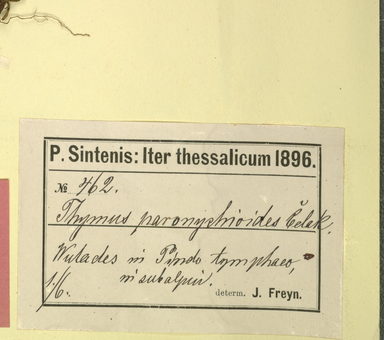 P. Sintenis: Iter thessalicum 1896.
№ 462.
Thymus paronychioides Čelak.
Wulades in Pindo tymphaeo,
in subalpin.
1/6.
determ. J. Freyn.